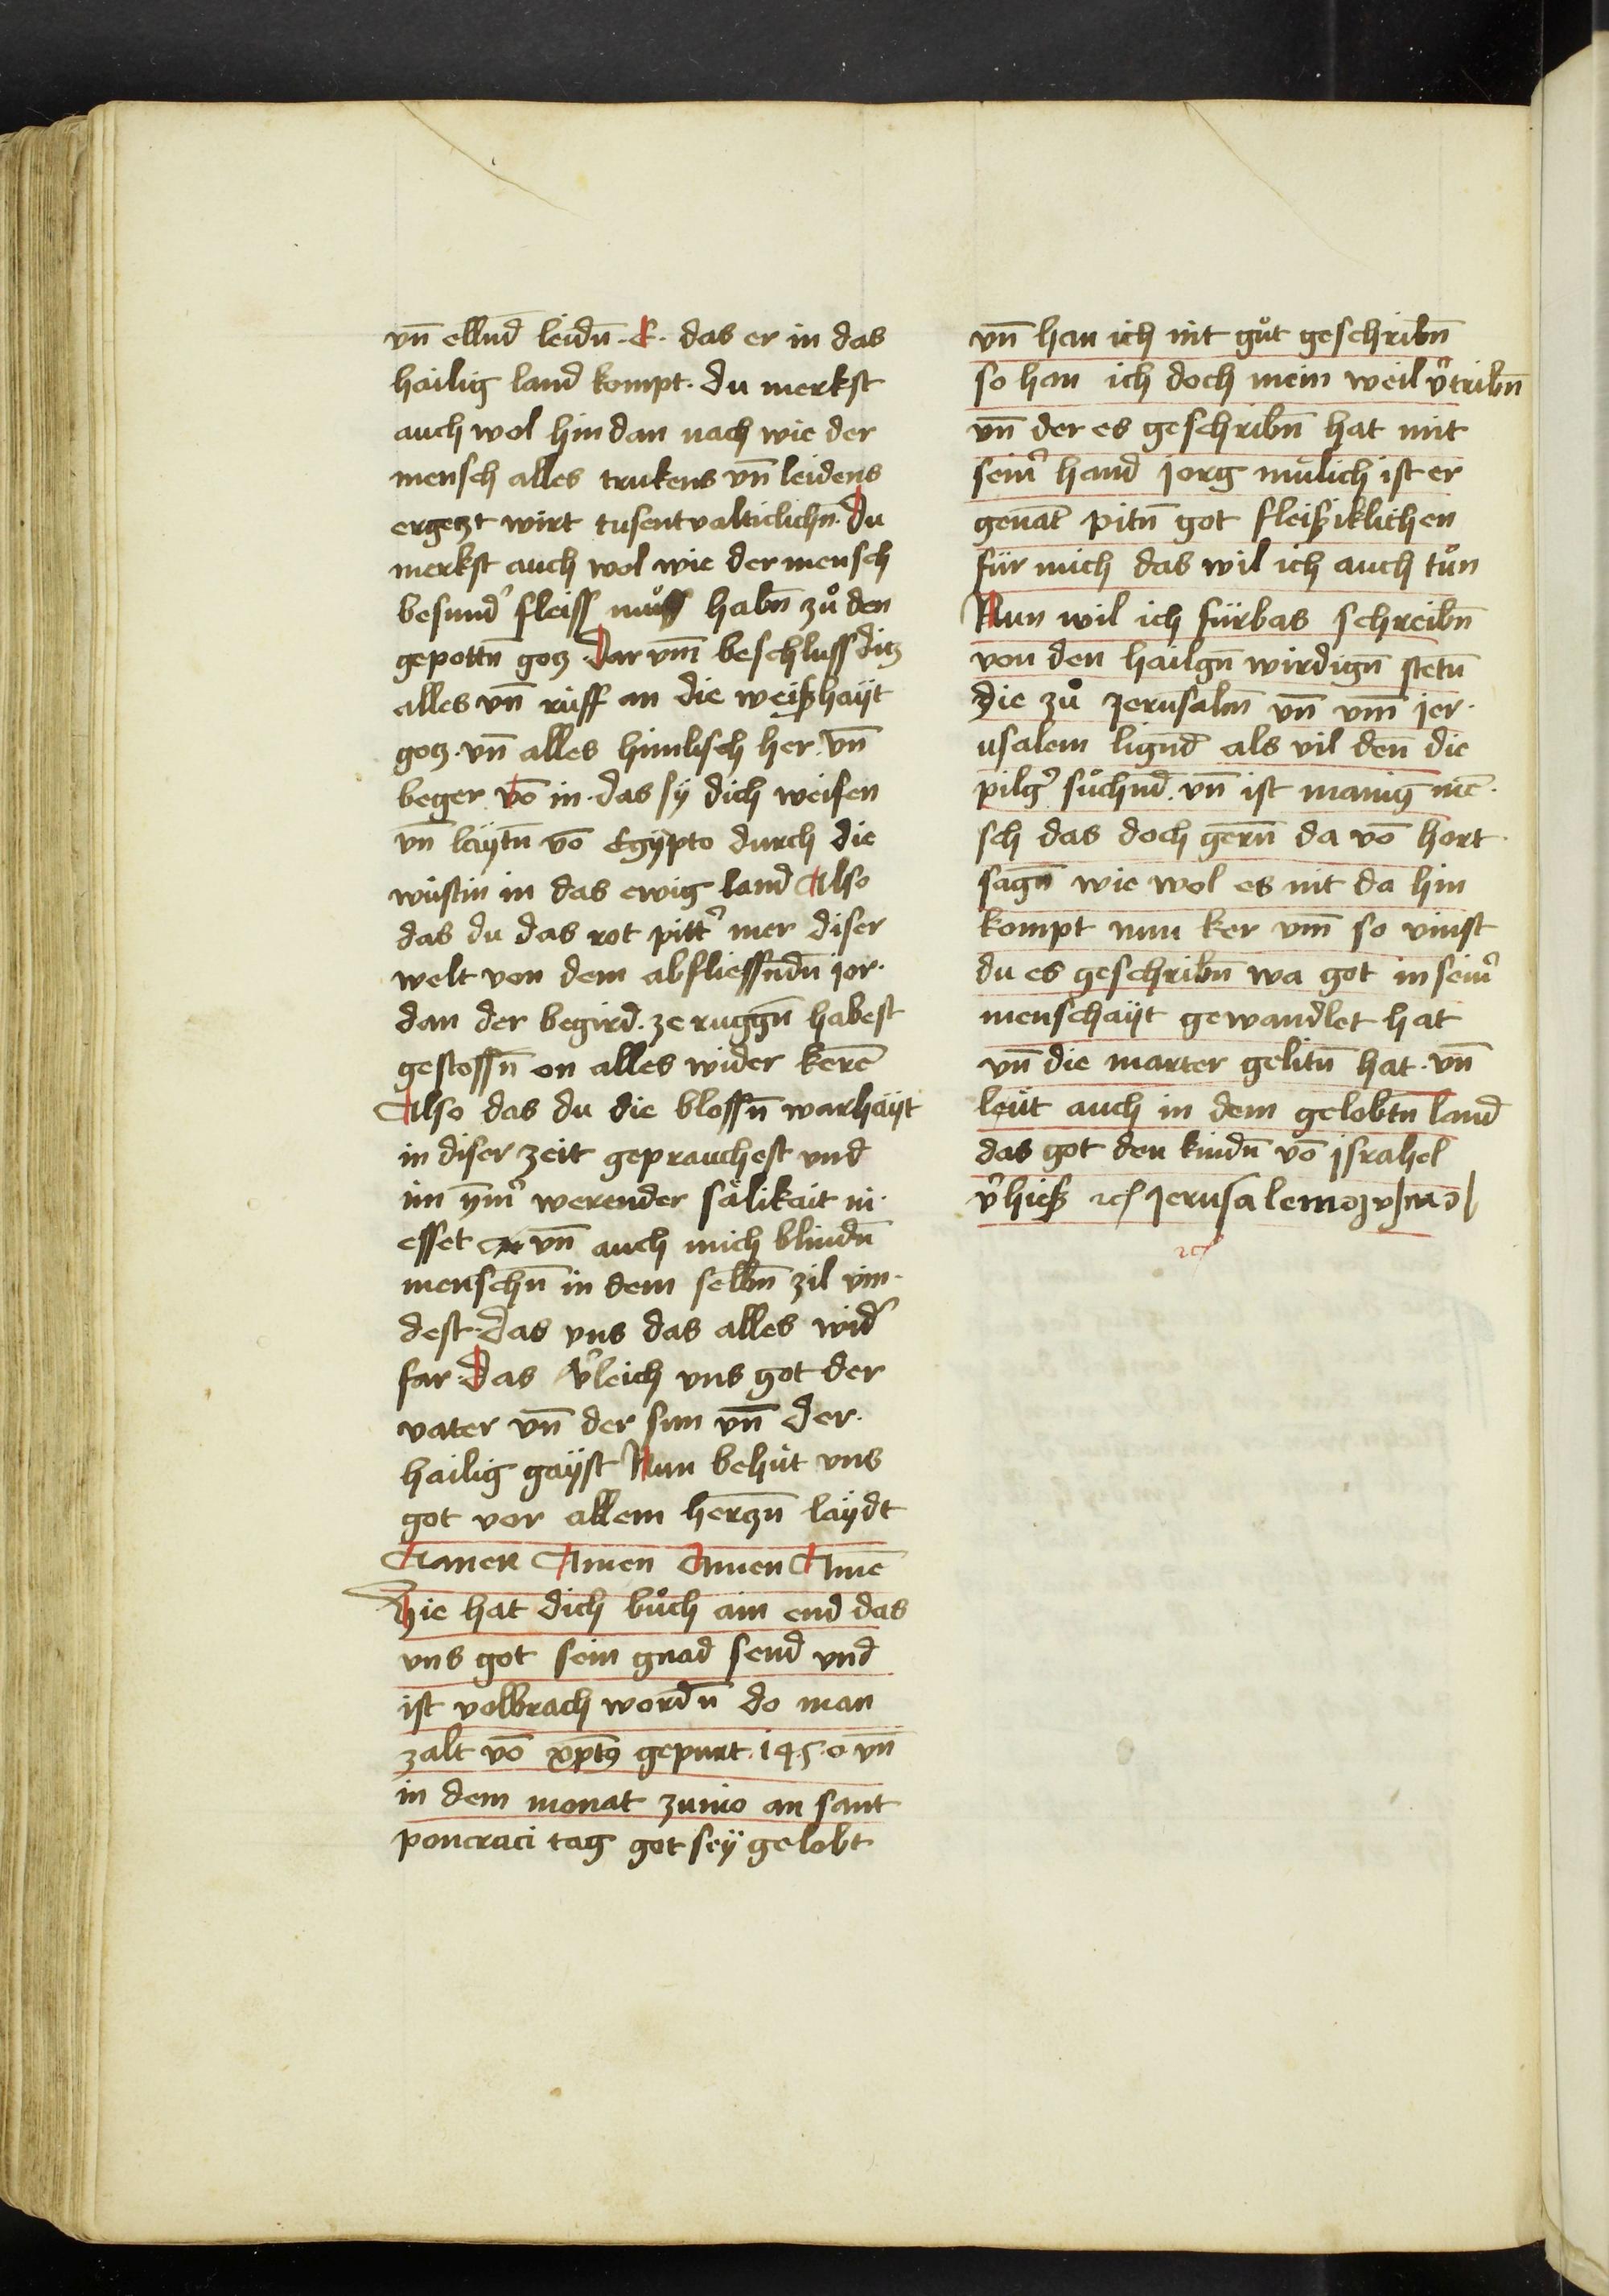 vn̄ ellnd̄ leidn̄ · E · das er in das
hailig land kompt · du merkst
auch wol hin dan nach wie der
mensch alles trukens vn̄ leidens
ergetzt wirt tusentvalticlichn · Du
merkst auch wol wie der mensch
besund͛ fleiss muͦss habn̄ zuͦ den
gepottn̄ gotz · Dar vm̄ beschluss ditz
alles vn̄ ruff an die weißhaÿt
gotz · vn̄ alles himlisch her · vn̄
beger vō in · das sÿ dich weisen
vn̄ laÿtn̄ vō Egÿpto durch die
wüstin in das ewig land Also
das du das rot pitt͛ mer diser
welt von dem abfliessn̄dn̄ jor·
dan der begird · ze ruggn̄ habest
gestossn̄ on alles wider kerē
Also das du die blossn̄ warhaÿt
in diser zeit geprauchest vnd
im ÿm͛ werender sälikait ni·
esset vn̄ auch mich blindn̄
menschn̄ in dem selbn̄ zil vin·
dest · Das vns das alles wid͛
far · Das v͛leich vns got der
vater vn̄ der sun vn̄ der ·
hailig gaÿst Nun behüt vns
got vor allem hertzn̄ laÿdt
Amen Amen Amen Amē
Hie hat dich buͦch ain end das
vns got sein gnad send vnd
ist volbrach wordn̄ do man
zalt vō xp̄tꝰ gepurt · 1450 vn̄
in dem monat zunio an sant
poncraci tag got seÿ gelobt
vn̄ han ich nit guͦt geschribn̄
so han ich doch mein weil v͛tribn̄
vn̄ der es geschribn̄ hat mit
seim͛ hand jorg mülich ist er
genāt pitn̄ got fleißiklichen
für mich das wil ich auch tuͦn
Nun wil ich fürbas schreibn̄
von den hailgn̄ wirdign̄ stetn̄
die zuͦ Jerusalm̄ vn̄ vm̄ jer·
usalem lignd̄ als vil den̄ die
pilg͛ suͦchnd̄ · vn̄ ist manig mē·
sch das doch gern̄ da vō hort
sagn̄ wie wol es nit da hin
kompt nun ker vm̄ so vinst
du es geschribn̄ wa got in seim͛
menschaÿt gewandlet hat
vn̄ die marter gelitn̄ hat · vn̄
leüt auch in dem gelobtn̄ land
das got den kindn̄ vō jsrahel
v͛hieß ⁊c Jerusalem
⁊c